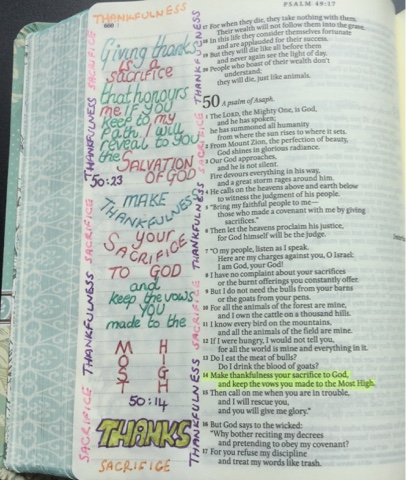 THANKFULNESS
600
Giving thanks
is a
sacrifice
that honours
me IF you
keep to my
Path. I will
reveal to you
the SALVATION
OF GOD
50:23
MAKE
THANKFULNESS
your
SACRIFICE
TO GOD
and
keep the vows
YOU
made to the
MOST HIGH
50:14
THANKS
SACRIFICE
THANKFULNESS SACRIFICE
SACRIFICE THANKFULNESS SACRIFICE THANKFULNESS SACRIFICE
THANKFULNESS SACRIFICE THANKFULNESS SACRIFICE THANKFULNESS
PSALM 49:17
17 For when they die, they take nothing with them.
Their wealth will not follow them into the grave.
18 In this life they consider themselves fortunate
and are applauded for their success.
19 But they will die like all before them
and never again see the light of day.
20 People who boast of their wealth don't
understand;
they will die, just like animals.
50 A psalm of Asaph.
1 The LORD, the Mighty One, is God,
and he has spoken;
he has summoned all humanity
from where the sun rises to where it sets.
2 From Mount Zion, the perfection of beauty,
God shines in glorious radiance.
3 Our God approaches,
and he is not silent.
Fire devours everything in his way,
and a great storm rages around him.
4 He calls on the heavens above and earth below
to witness the judgment of his people.
5 "Bring my faithful people to me—
those who made a covenant with me by giving
sacrifices."
6 Then let the heavens proclaim his justice,
for God himself will be the judge.
7 "O my people, listen as I speak.
Here are my charges against you, O Israel:
I am God, your God!
8 I have no complaint about your sacrifices
or the burnt offerings you constantly offer.
9 But I do not need the bulls from your barns
or the goats from your pens.
10 For all the animals of the forest are mine,
and I own the cattle on a thousand hills.
11 I know every bird on the mountains,
and all the animals of the field are mine.
12 If I were hungry, I would not tell you,
for all the world is mine and everything in it.
13 Do I eat the meat of bulls?
Do I drink the blood of goats?
14 Make thankfulness your sacrifice to God,
and keep the vows you made to the Most High.
15 Then call on me when you are in trouble,
and I will rescue you,
and you will give me glory."
16 But God says to the wicked:
"Why bother reciting my decrees
and pretending to obey my covenant?
17 For you refuse my discipline
and treat my words like trash.